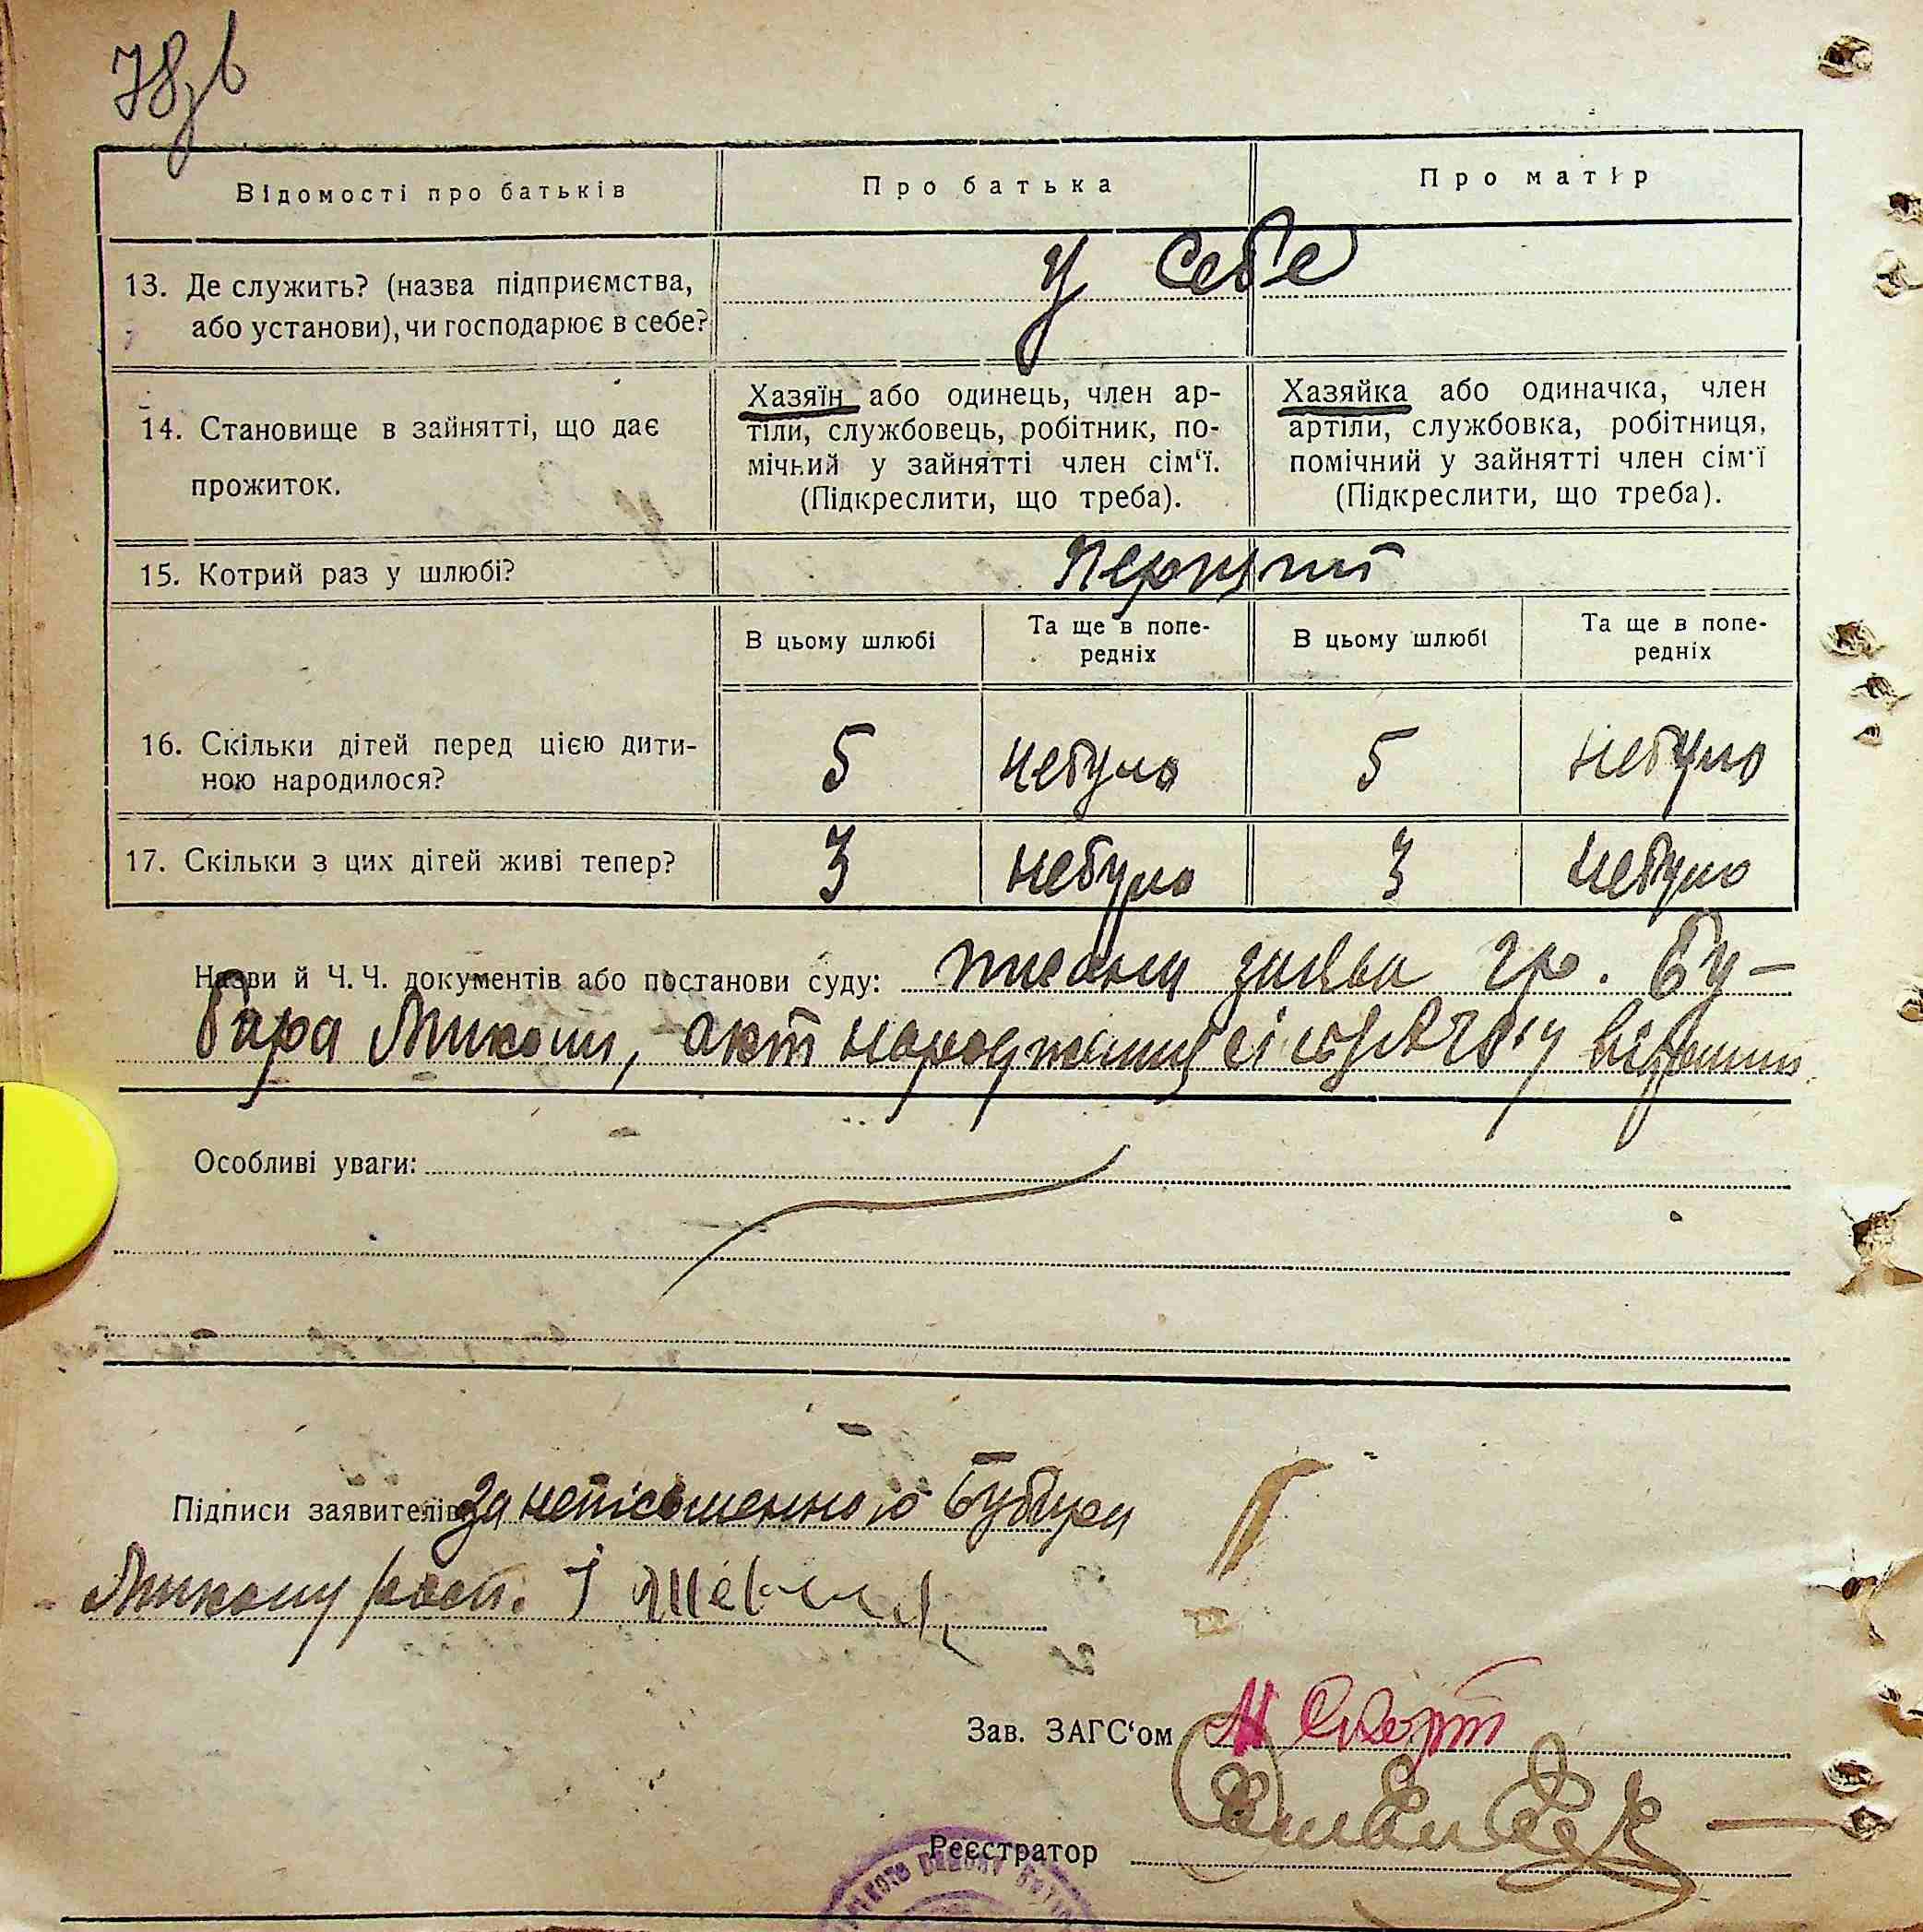 78зв
Відомості про батьків Про батька Про матір
у себе
13. Де служить? (назва підприємства,
або установи), чи господарює в себе?
14. Становище в зайнятті, що дає
прожиток.
Хазяїн або одинець, член ар-
тіли, службовець, робітник, по-
мічний у зайнятті член сім‘ї.
(Підкреслити, що треба).
Хазяйка або одиначка, член
артіли, службовка, робітниця,
помічний у зайнятті член сім‘ї
(Підкреслити, що треба).
15. Котрий раз у шлюбі? перший
В цьому шлюбі Та ще в попе-
редніх
В цьому шлюбі Та ще в попе-
редніх
16. Скільки дітей перед цією дити-
ною народилося?
5 небуло 5 небуло
17. Скільки з цих дітей живі тепер? 3 небуло 3 небуло
Назви й Ч. Ч. документів або постанови суду: заява гр. Бу-
бара Миколи, акт
Особливі уваги:
Підписи заявителів За неписьменного Бубира
Миколу расп.
Зав. ЗАГС‘ом
Реєстратор